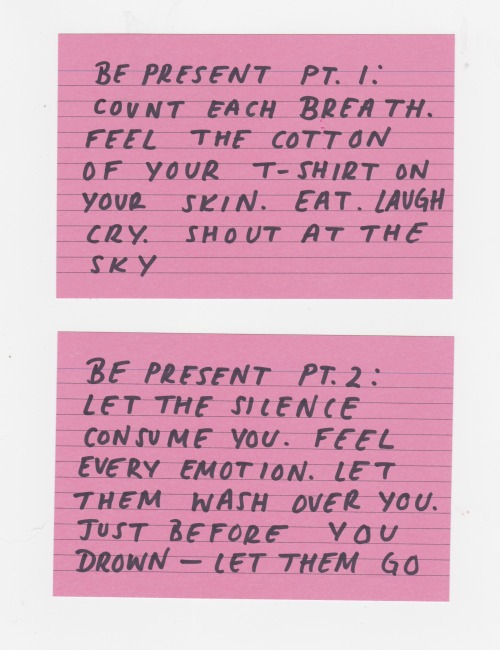 BE PRESENT PT. 1:
COUNT EACH BREATH.
FEEL THE COTTON
OF YOUR T-SHIRT ON
YOUR SKIN. EAT. LAUGH
CRY. SHOUT AT THE
SKY
BE PRESENT PT. 2:
LET THE SILENCE
CONSUME YOU. FEEL
EVERY EMOTION. LET
THEM WASH OVER YOU.
JUST BEFORE YOU
DROWN — LET THEM GO